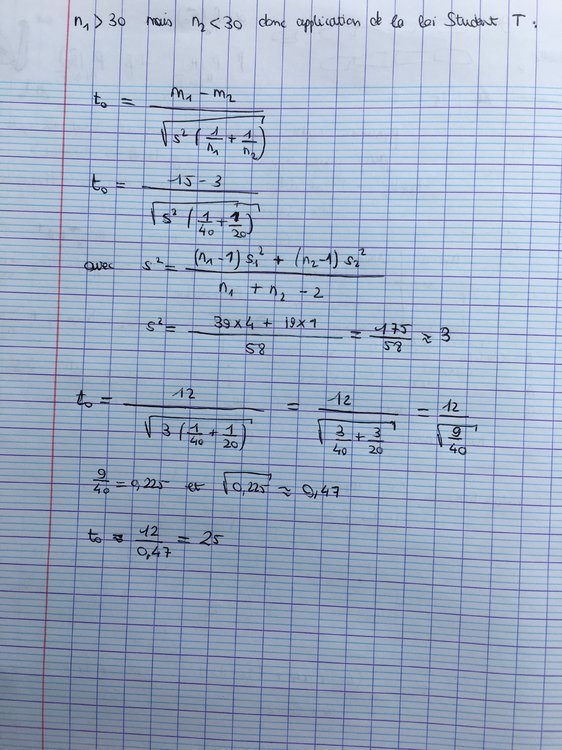 n₁ > 30 mais n₂ < 30 donc application de la loi Student T :
t₀ = (m₁ - m₂) / √(s² (1/n₁ + 1/n₂))
t₀ = (15 - 3) / √(s² (1/40 + 1/20))
avec s² = ((n₁-1) s₁² + (n₂-1) s₂²) / (n₁ + n₂ - 2)
s² = (39×4 + 19×1) / 58 = 175/58 ≈ 3
t₀ = 12 / √(3 (1/40 + 1/20)) = 12 / √(3/40 + 3/20) = 12 / √(9/40)
9/40 = 0,225 et √(0,225) ≈ 0,47
t₀ ≈ 12/0,47 = 25